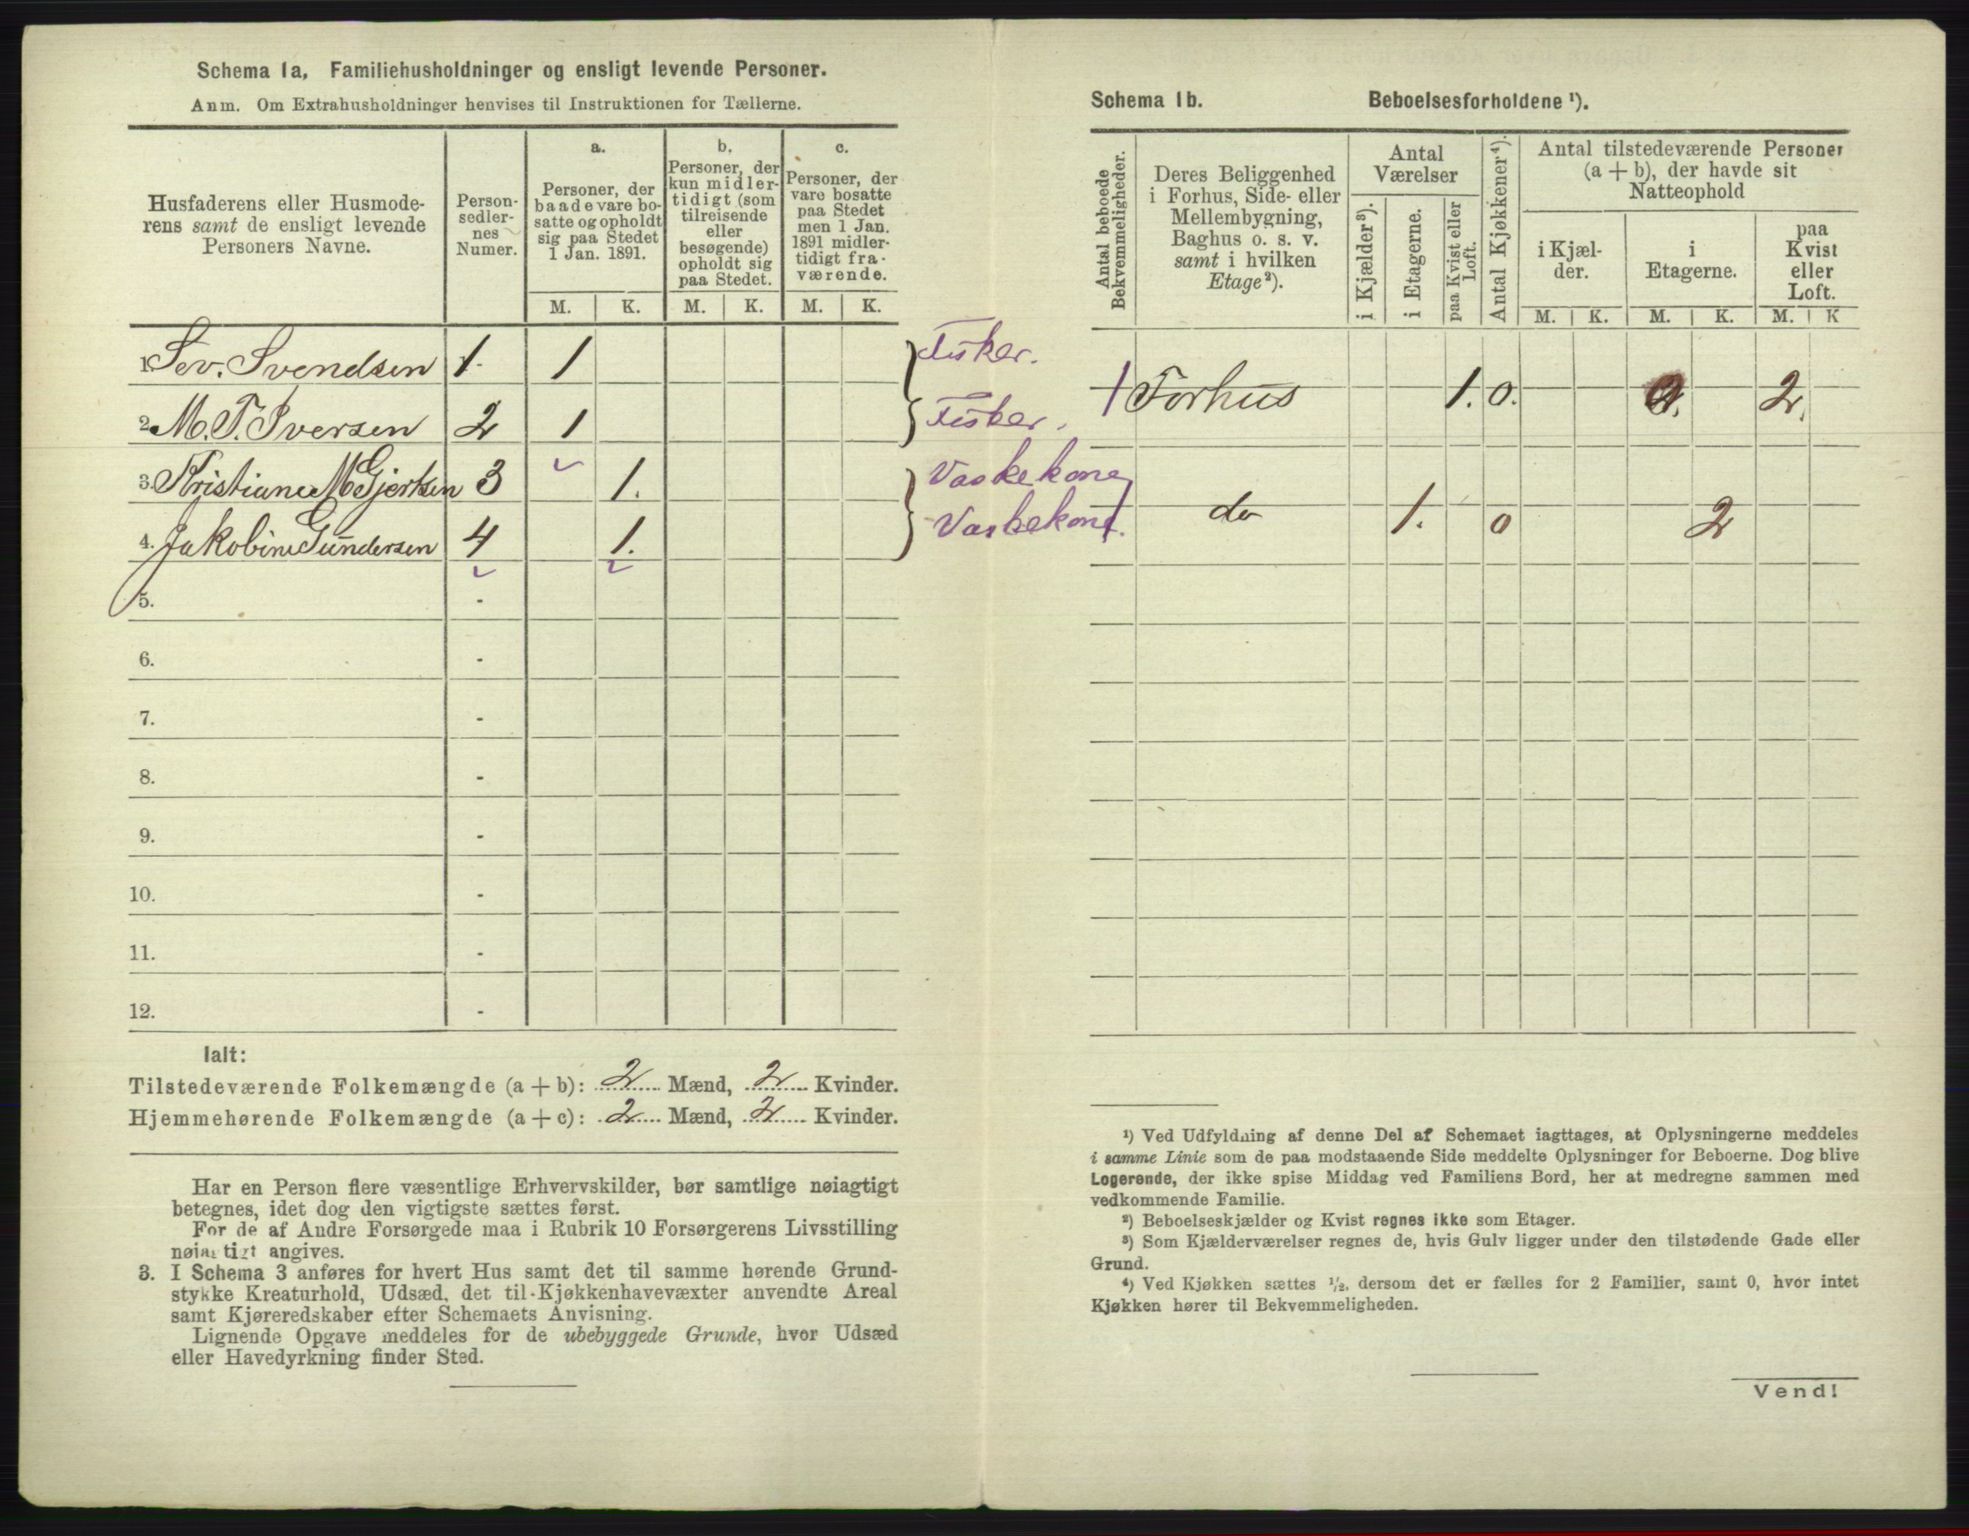 Schema 1a, Familiehusholdninger og ensligt levende Personer.
Anm. Om Extrahusholdninger henvises til Instruktionen for Tællerne.
Husfaderens eller Husmode-
rens samt de ensligt levende
Personers Navne.
Person-
sedler-
nes
Numer.
a.
Personer, der
baade vare bo-
satte og opholdt
sig paa Stedet
1 Jan. 1891.
b.
Personer, der
kun midler-
tidigt (som
tilreisende
eller
besøgende)
opholdt sig
paa Stedet.
c.
Personer, der
vare bosatte
paa Stedet
men 1 Jan.
1891 midler-
tidigt fra-
værende.
M. K. M. K. M. K.
1. Sev. Svendsen 1. 1 Fisker.
2. M. T. Iversen 2 1 Fisker.
3. Kristiane M Gjertsen 3 1. Vaskekone
4. Jakobine Gundersen 4 1. Vaskekone.
5. -
6. -
7. -
8. -
9. -
10. -
11. -
12. -
Ialt:
Tilstedeværende Folkemængde (a + b): 2 Mænd, 2 Kvinder.
Hjemmehørende Folkemængde (a + c): 2 Mænd, 2 Kvinder.
Har en Person flere væsentlige Erhvervskilder, bør samtlige nøiagtigt
betegnes, idet dog den vigtigste sættes først.
For de af Andre Forsørgede maa i Rubrik 10 Forsørgerens Livsstilling
nøiagtigt angives.
3. I Schema 3 anføres for hvert Hus samt det til samme hørende Grund-
stykke Kreaturhold, Udsæd, det til Kjøkkenhavevæxter anvendte Areal
samt Kjøreredskaber efter Schemaets Anvisning.
Lignende Opgave meddeles for de ubebyggede Grunde, hvor Udsæd
eller Havedyrkning finder Sted.
Schema 1b. Beboelsesforholdene ¹).
Antal beboede
Bekvemmeligheder.
Deres Beliggenhed
i Forhus, Side- eller
Mellembygning,
Baghus o. s. v.
samt i hvilken
Etage²).
Antal
Værelser
i Kjælder³).
i Etagerne.
paa Kvist eller
Loft.
Antal Kjøkkener⁴).
Antal tilstedeværende Personer
(a + b), der havde sit
Natteophold
i Kjæl-
der.
i
Etagerne.
paa
Kvist
eller
Loft.
M. K. M. K. M. K
1 Forhus 1. 0. 2. 2.
1 do 1. 0 2
¹) Ved Udfyldning af denne Del af Schemaet iagttages, at Oplysningerne meddeles
i samme Linie som de paa modstaaende Side meddelte Oplysninger for Beboerne. Dog blive
Logerende, der ikke spise Middag ved Familiens Bord, her at medregne sammen med
vedkommende Familie.
²) Beboelseskjælder og Kvist regnes ikke som Etager.
³) Som Kjælderværelser regnes de, hvis Gulv ligger under den tilstødende Gade eller
Grund.
⁴) Ved Kjøkken sættes ¹/₂, dersom det er fælles for 2 Familier, samt 0, hvor intet
Kjøkken hører til Bekvemmeligheden.
Vend!